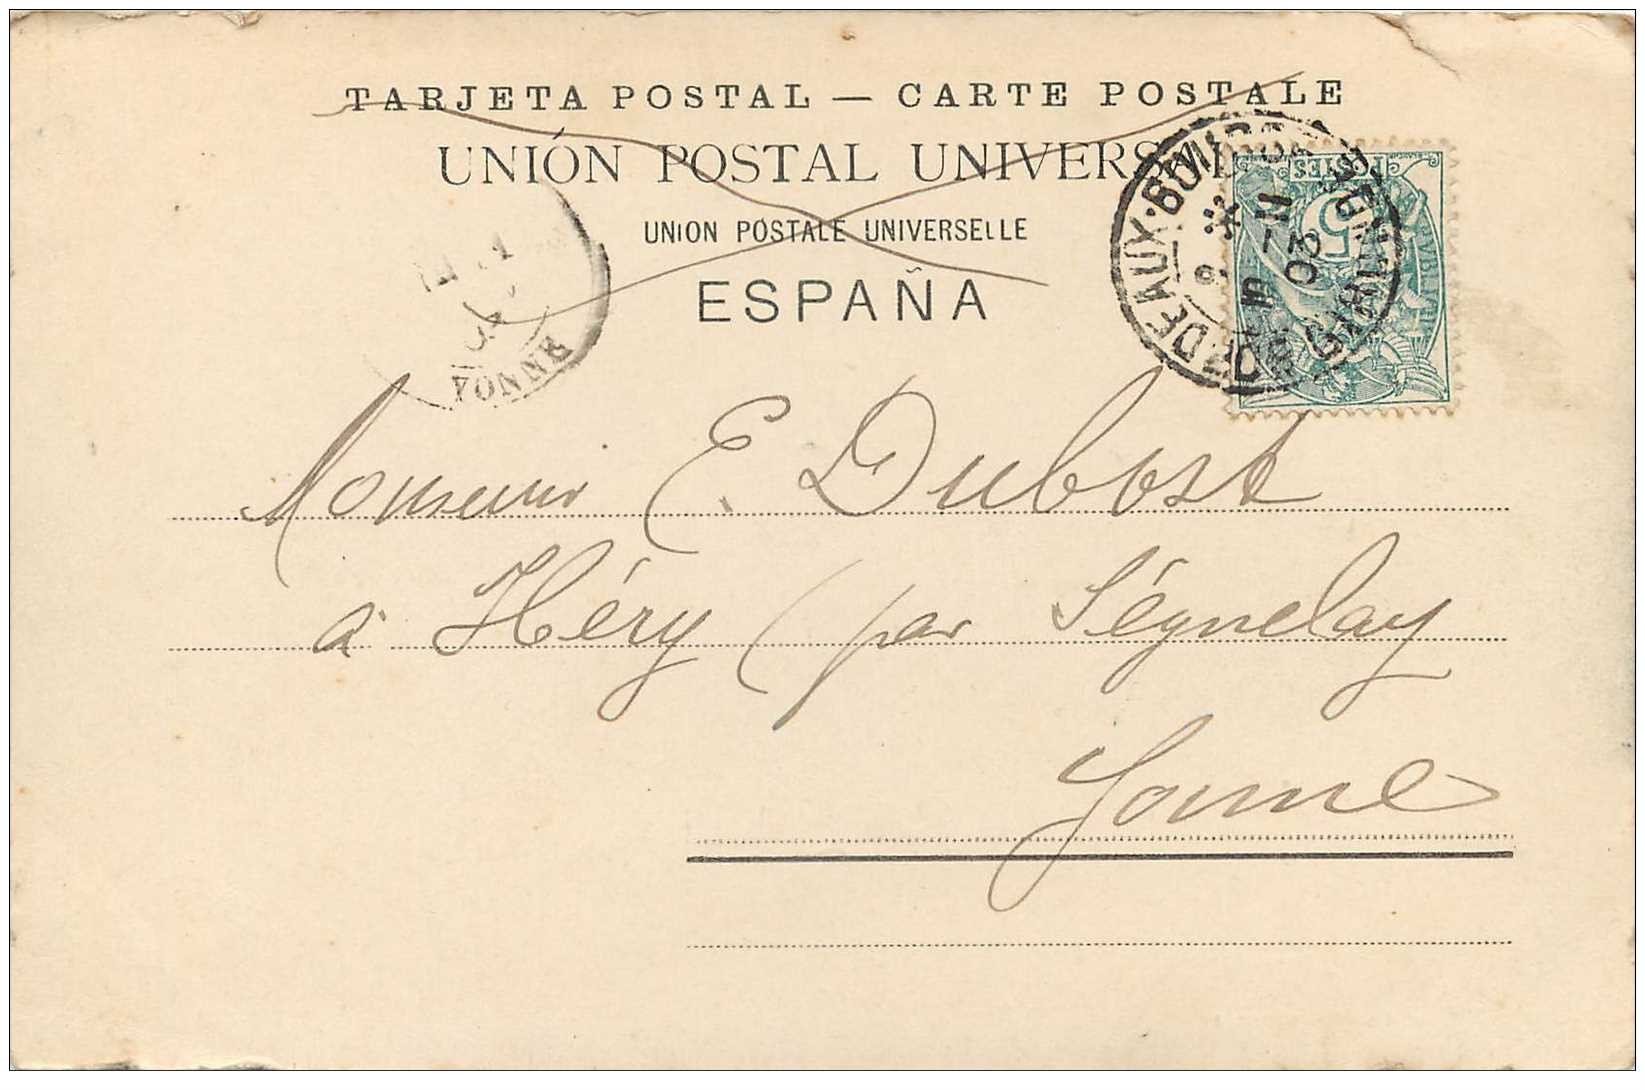 TARJETA POSTAL — CARTE POSTALE
UNIÓN POSTAL UNIVERSAL
UNION POSTALE UNIVERSELLE
ESPAÑA
YONNE
BORDEAUX
GIRONDE
03
POSTES
5
Monsieur E. Dubost
à Héry (par Ségnelay
Yonne